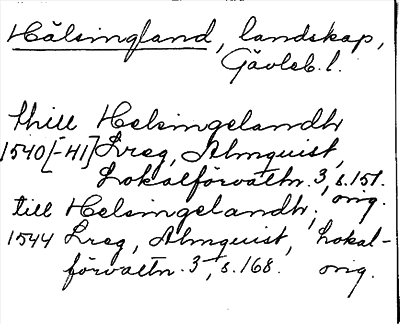 Hälsingland, landskap,
Gävleb. l.
thill Helsingelandh
1540[-41] Lreg, Almquist,
Lokalförvaltn. 3, s. 151.
orig.
till Helsingelandh,
1544 Lreg, Almquist, Lokal-
förvaltn. 3, s. 168. orig.